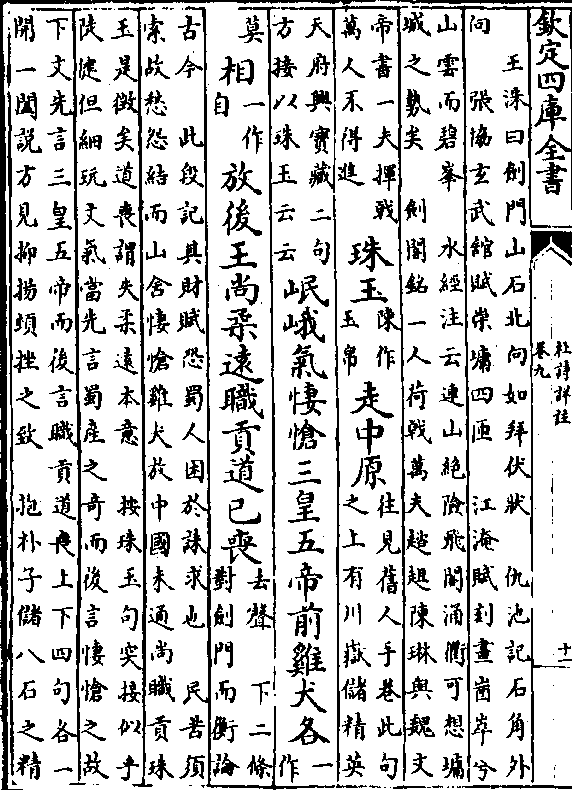 欽定四庫全書
杜詩詳註
卷九
十一
王洙曰劍門山石北向如拜伏狀　仇池記石角外
向　張協玄武館賦崇墉四匝　江淹賦刻畫崗崒兮
山雲而碧峯　水經注云連山絶險飛閣通衢可想墉
城之勢矣　劍閣銘一人荷戟萬夫趑趄陳琳與魏文
帝書一夫揮戟
萬人不得進
珠玉
陳作
玉帛
走中原
往見舊人手卷此句
之上有川嶽儲精英
天府興寶藏二句
方接以珠玉云云
岷峨氣悽愴三皇五帝前雞犬各
一
作
莫
相
一作
自
放後王尚柔遠職貢道已喪
去聲　下二條
對劍門而衡論
古今　此段記其財賦恐蜀人困於誅求也　民苦須
索故愁怨結而山含悽愴雞犬放中國未通尚職貢珠
玉是徵矣道喪謂失柔遠本意　按珠玉句突接似乎
陡健但細玩文氣當先言蜀産之奇而後言悽愴之故
下文先言三皇五帝而後言職貢道喪上下四句各一
開一闔説方見抑揚頓挫之致　抱朴子儲八石之精